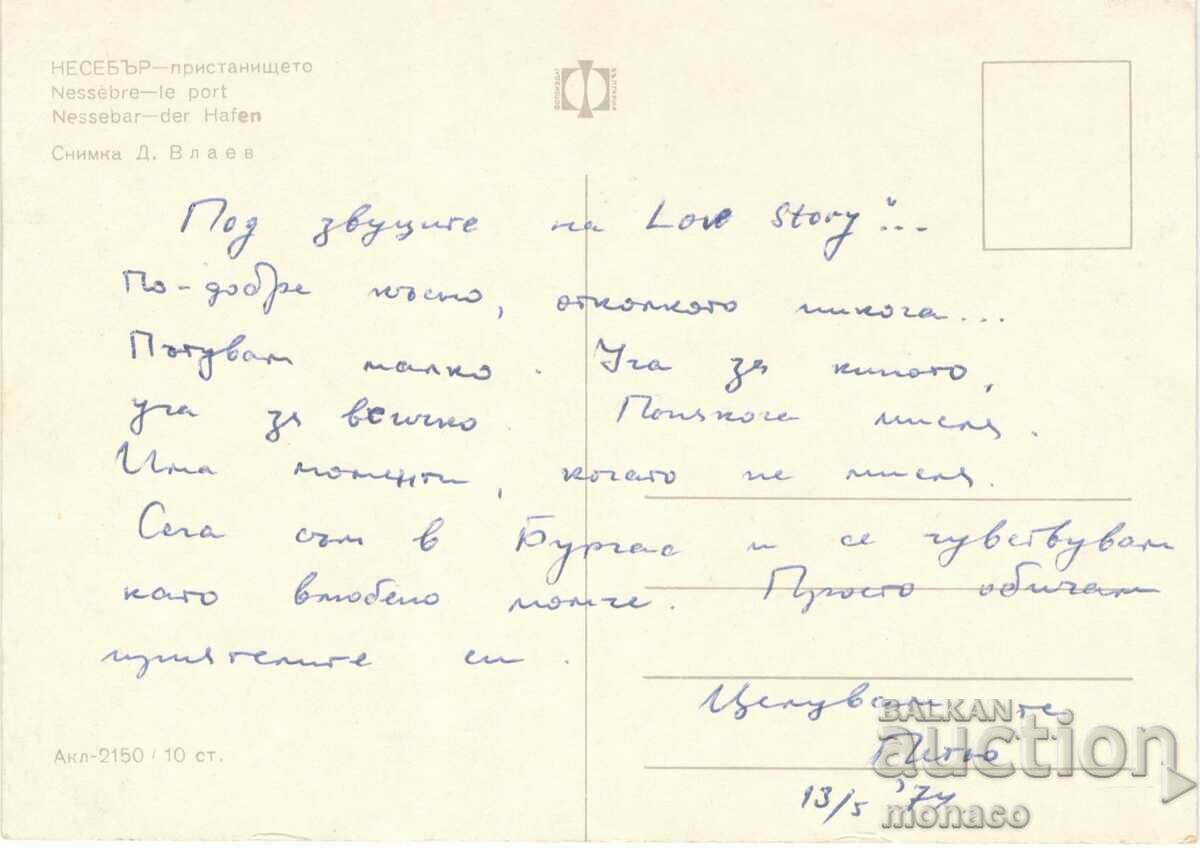 НЕСЕБЪР—пристанището
Nessèbre—le port
Nessebar—der Hafen
Снимка Д. Влаев
ФОТОИЗДАТ
БЪЛГАРИЯ
Под звуците на Love Story"...
По-добре късно, отколкото никога...
Пътувам малко. Уча за киното,
уча за всичко. Понякога мисля.
Има моменти, когато не мисля.
Сега съм в Бургас и се чувствувам
като влюбено момче. Просто обичам
приятелите си.
Целувам те
13/5 '74
Акл-2150 / 10 ст.
BALKAN
auction
monaco